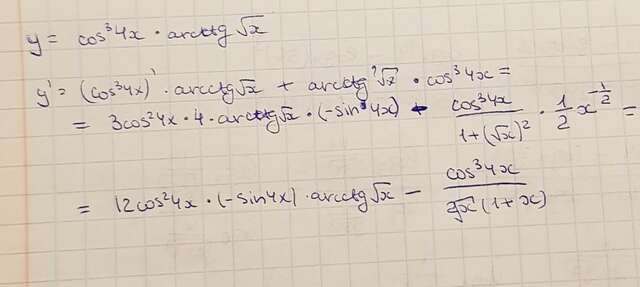 y = cos³4x · arcctg√x
y' = (cos³4x)' · arcctg√x + arcctg'√x · cos³4x =
= 3cos²4x · 4 · arcctg√x · (-sin4x) - cos³4x / (1+(√x)²) · 1/2 x^(-1/2) =
= 12cos²4x · (-sin4x) · arcctg√x - cos³4x / (2√x(1+x))